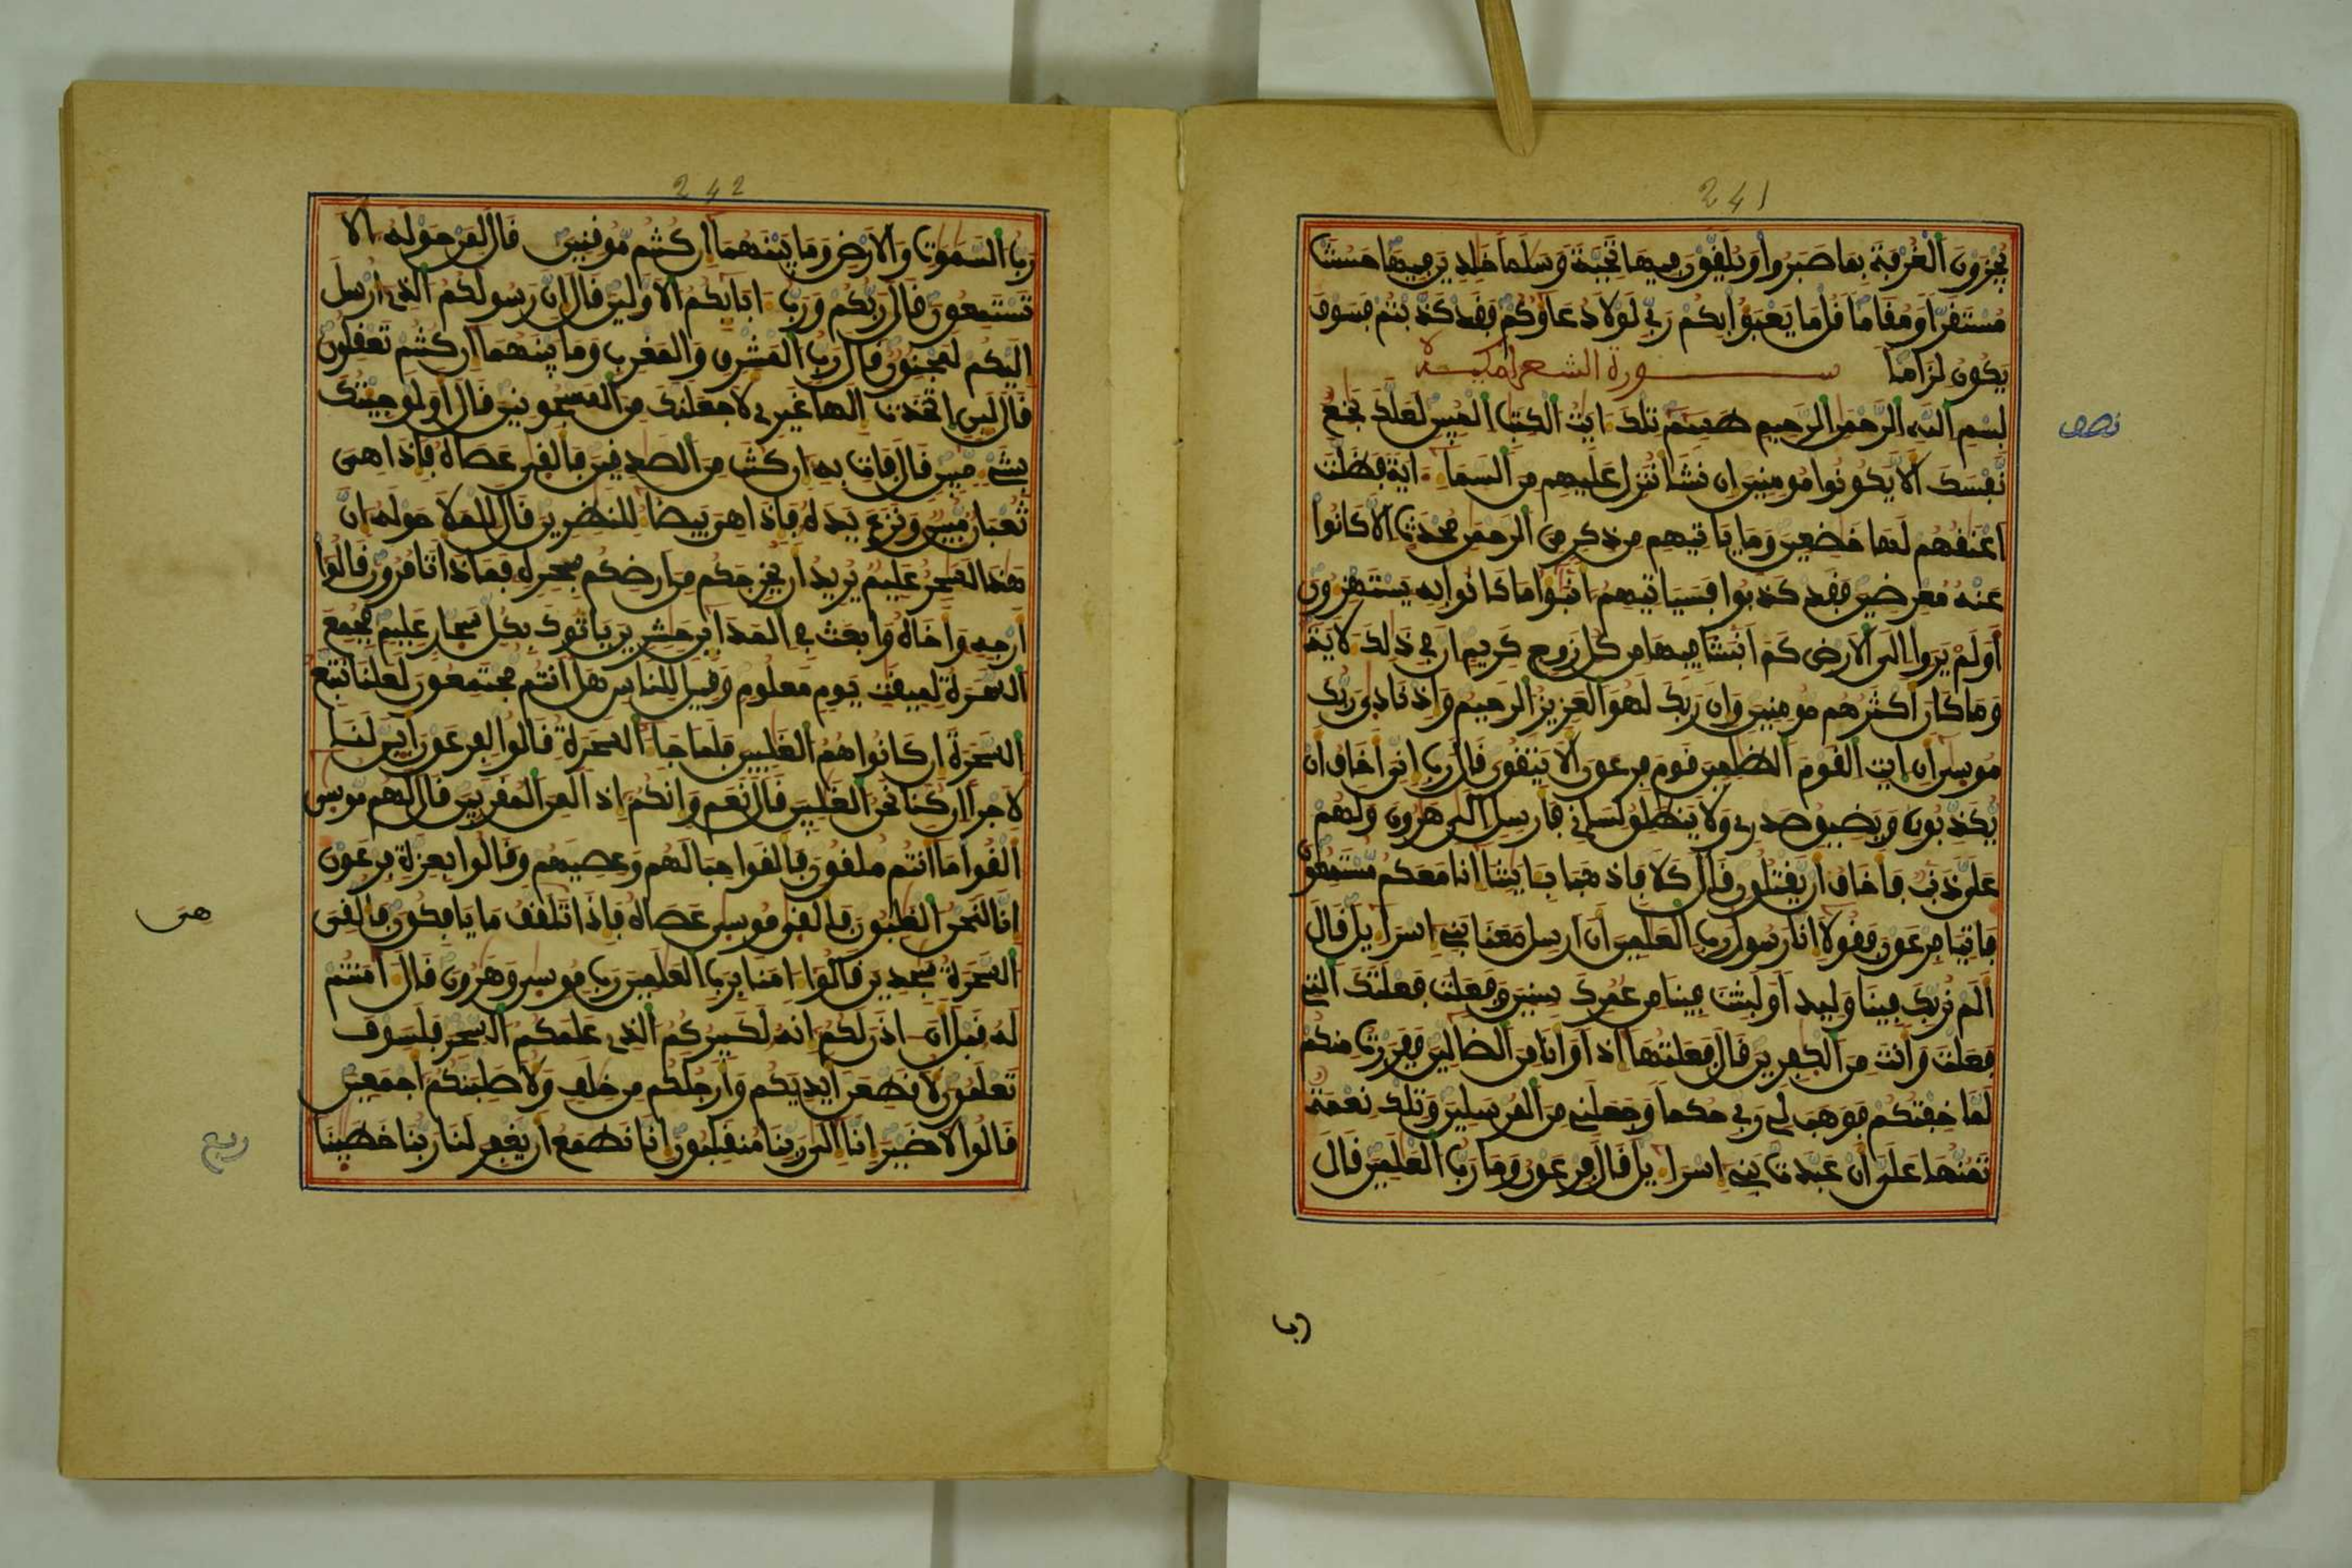 241
يجزون الغرفة بما صبروا ويلقون فيها تحية وسلما خلدين فيها حسنت
مستقرا ومقاما قل ما يعبؤا بكم ربي لولا دعاؤكم فقد كذبتم فسوف
يكون لزاما سورة الشعرا مكية
بسم الله الرحمن الرحيم طسم تلك ايت الكتب المبين لعلك بخع
نصف
نفسك الا يكونوا مومنين ان نشا ننزل عليهم من السما اية فظلت
اعنقهم لها خضعين وما ياتيهم من ذكر من الرحمن محدث الا كانوا
عنه معرضين فقد كذبوا فسياتيهم انبؤا ما كانوا به يستهزءون
اولم يروا الى الارض كم انبتنا فيها من كل زوج كريم ان في ذلك لاية
وما كان اكثرهم مومنين وان ربك لهو العزيز الرحيم واذ نادى ربك
موسى ان ايت القوم الظلمين قوم فرعون الا يتقون قال رب اني اخاف ان
يكذبون ويضيق صدري ولا ينطلق لساني فارسل الى هرون ولهم
علي ذنب فاخاف ان يقتلون قال كلا فاذهبا بايتنا انا معكم مستمعون
فاتيا فرعون فقولا انا رسول رب العلمين ان ارسل معنا بني اسرايل قال
الم نربك فينا وليدا ولبثت فينا من عمرك سنين وفعلت فعلتك التي
فعلت وانت من الكفرين قال فعلتها اذا وانا من الضالين ففررت منكم
لما خفتكم فوهب لي ربي حكما وجعلني من المرسلين وتلك نعمة
تمنها علي ان عبدت بني اسرايل قال فرعون وما رب العلمين قال
رب
242
رب السموت والارض وما بينهما ان كنتم موقنين قال لمن حوله الا
تستمعون قال ربكم ورب ابايكم الاولين قال ان رسولكم الذي ارسل
اليكم لمجنون قال رب المشرق والمغرب وما بينهما ان كنتم تعقلون
قال لين اتخذت الها غيري لاجعلنك من المسجونين قال اولو جيتك
بشيء مبين قال فات به ان كنت من الصدقين فالقى عصاه فاذا هي
ثعبان مبين ونزع يده فاذا هي بيضا للنظرين قال للملا حوله ان
هذا لسحر عليم يريد ان يخرجكم من ارضكم بسحره فماذا تامرون قالوا
ارجه واخاه وابعث في المداين حشرين ياتوك بكل سحار عليم فجمع
السحرة لميقت يوم معلوم وقيل للناس هل انتم مجتمعون لعلنا نتبع
السحرة ان كانوا هم الغلبين فلما جا السحرة قالوا لفرعون اين لنا
لاجرا ان كنا نحن الغلبين قال نعم وانكم اذا لمن المقربين قال لهم موسى
القوا ما انتم ملقون فالقوا حبالهم وعصيهم وقالوا بعزة فرعون
انا لنحن الغلبون فالقى موسى عصاه فاذا تلقف ما يافكون فالقي
هى
السحرة سجدين قالوا امنا برب العلمين رب موسى وهرون قال امنتم
له قبل ان اذن لكم انه لكبيركم الذي علمكم السحر فلسوف
تعلمون لاقطعن ايديكم وارجلكم من خلف ولاصلبنكم اجمعين
قالوا لا ضير انا الى ربنا منقلبون انا نطمع ان يغفر لنا ربنا خطينا
ربع